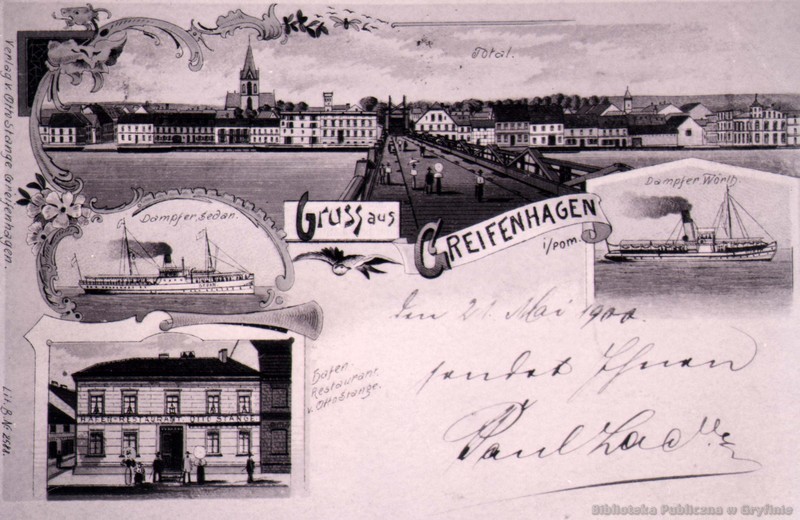 Verlag v. Otto Stange, Greifenhagen.
Total.
Dampfer Sedan.
Dampfer Wörth.
Gruss aus
GREIFENHAGEN
i/Pom.
den 21. Mai 1900.
sendet Ihnen
Paul
Hafen-
Restaurant
v. Otto Stange.
HAFEN-RESTAURANT OTTO STANGE
SEDAN
Biblioteka Publiczna w Gryfinie